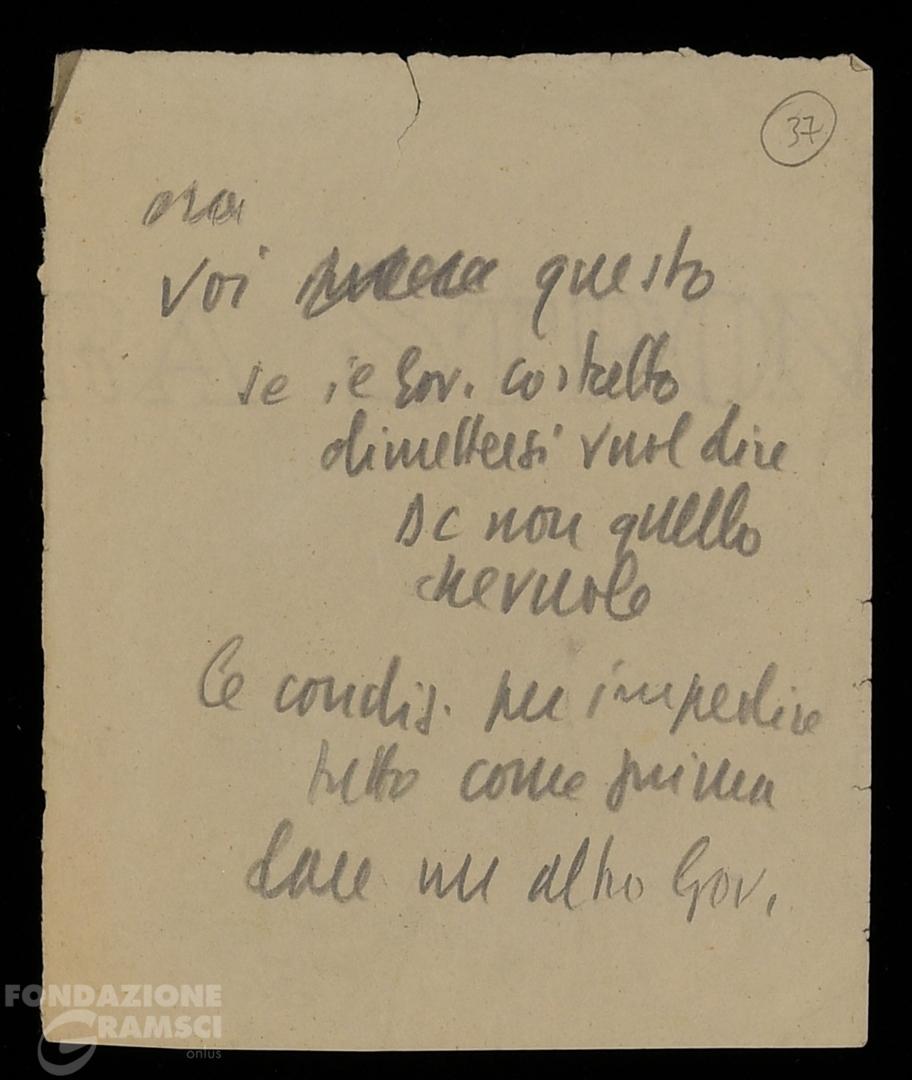 37
ora
voi questo
se il Gov. costretto
dimettersi vuol dire
DC non quello
che vuole
Le condiz. per impedire
tutto come prima
fare un altro Gov.
FONDAZIONE
GRAMSCI
onlus